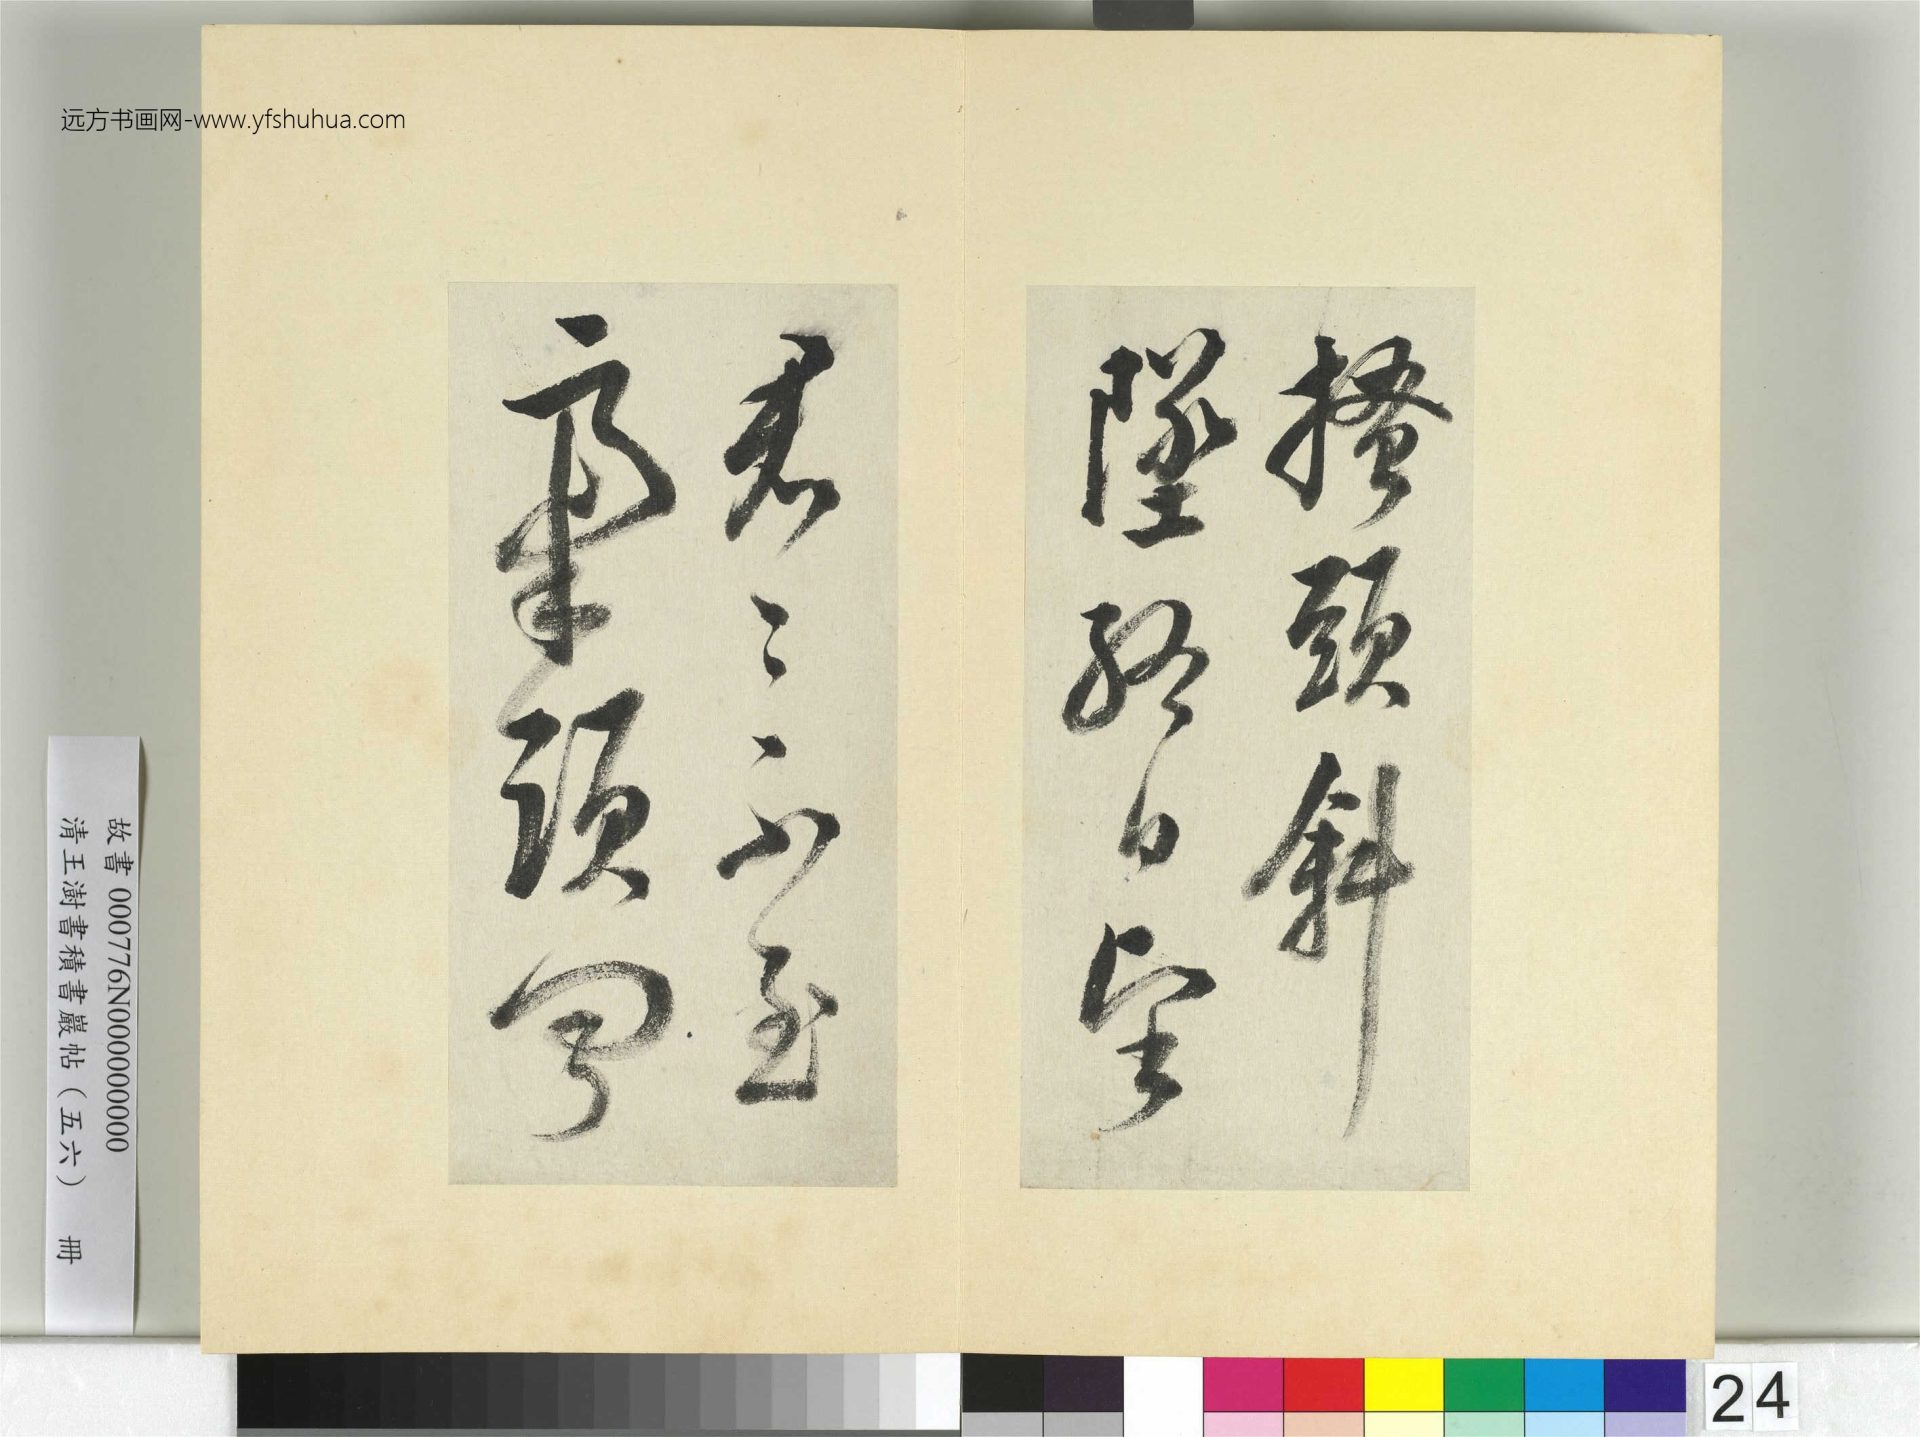 远方书画网-www.yfshuhua.com
搔頭斜
墜終日望
君〻不至
舉頭聞
故書000776N000000000
清王澍書積書巖帖（五六） 冊
24